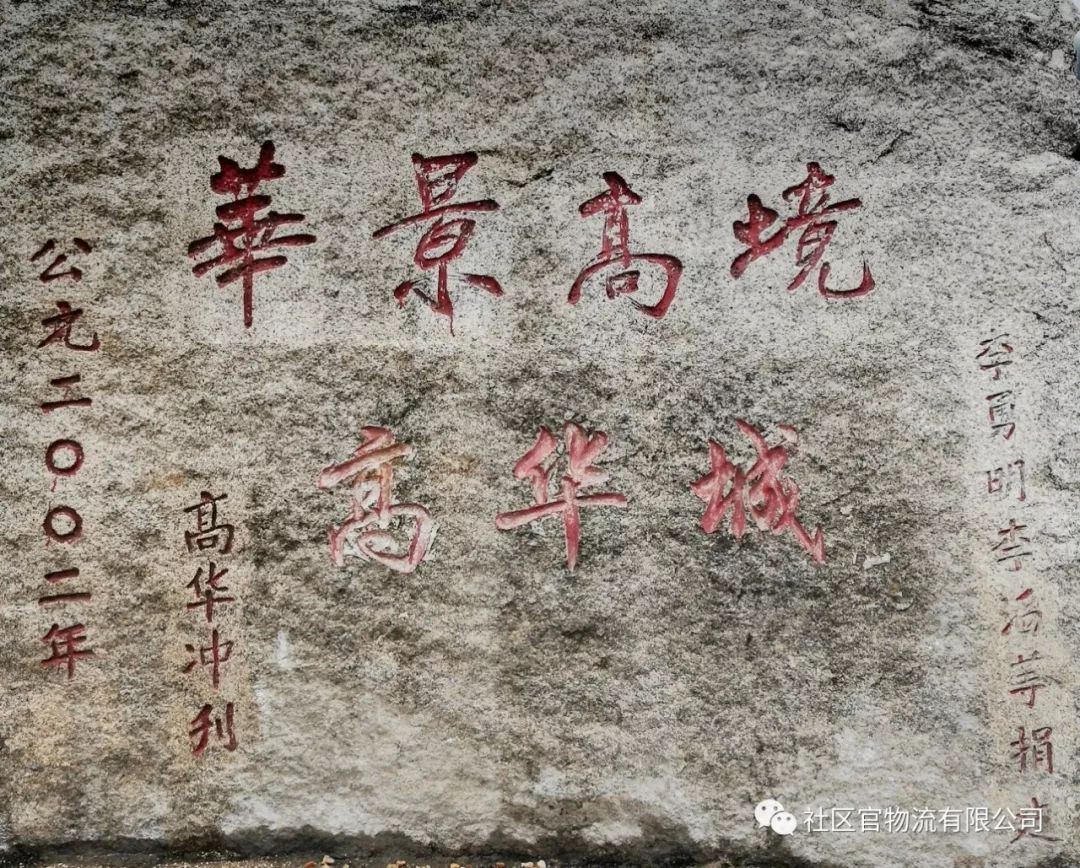 華景高境
高华城
李勇明李海捐
高华冲刊
公元二〇〇二年
社区官物流有限公司